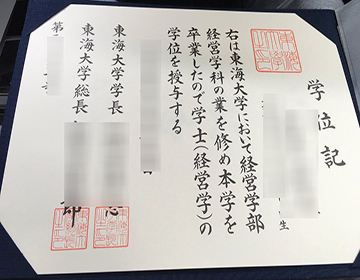 学位記
生
右は東海大学において経営学部
経営学科の業を修め本学を
卒業したので学士(経営学)の
学位を授与する
東海大学学長
東海大学総長
第